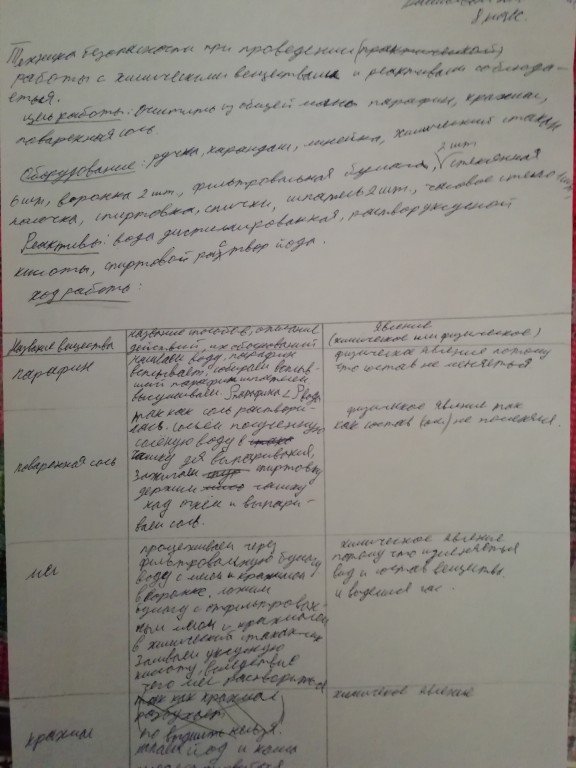 8 класс.
Техника безопасности при проведении (практической)
работы с химическими веществами и реактивами соблюда-
ется.
Цель работы: Очистить из общей массы парафин, крахмал,
поваренная соль.
Оборудование: ручка, карандаш, линейка, химический стакан
6 шт, воронка 2 шт, фильтровальная бумага 2 шт, стеклянная
палочка, спиртовка, спички, шпатель 2 шт, часовое стекло
Реактивы: вода дистилированная, раствор уксусной
кислоты, спиртовой раствор йода.
Ход работы:
Название вещества
название способов, описание
действий, их обоснований
Явление
(химическое или физическое)
парафин
воду, парафин
всплывает, собираем всплыв-
ший парафин шпателем
высушиваем. ρ парафина < ρ воды
физическое явление потому
что состав не меняеться
поваренная соль
так как соль раствори-
лась. полученную
соленую воду в
чашку для выпаривания,
Зажигаем спиртовку
держим чашку
над огнём и выпари-
ваем соль.
физическое явление так
как состав (соли) не поменялся.
мел
процеживаем через
фильтровальную бумагу
воду с мелом и крахмалом
в воронке, ложим
бумагу с отфильтрован-
ным мелом и крахмалом
в химический стакан
Заливаем уксусную
кислоту, вследствие
чего мел растворяться
химическое явление
потому что изменяеться
вид и состав вещества
и выделился газ.
крахмал
так как крахмал
разбухает,
но выделить нельзя.
йод и капля
химическое явление